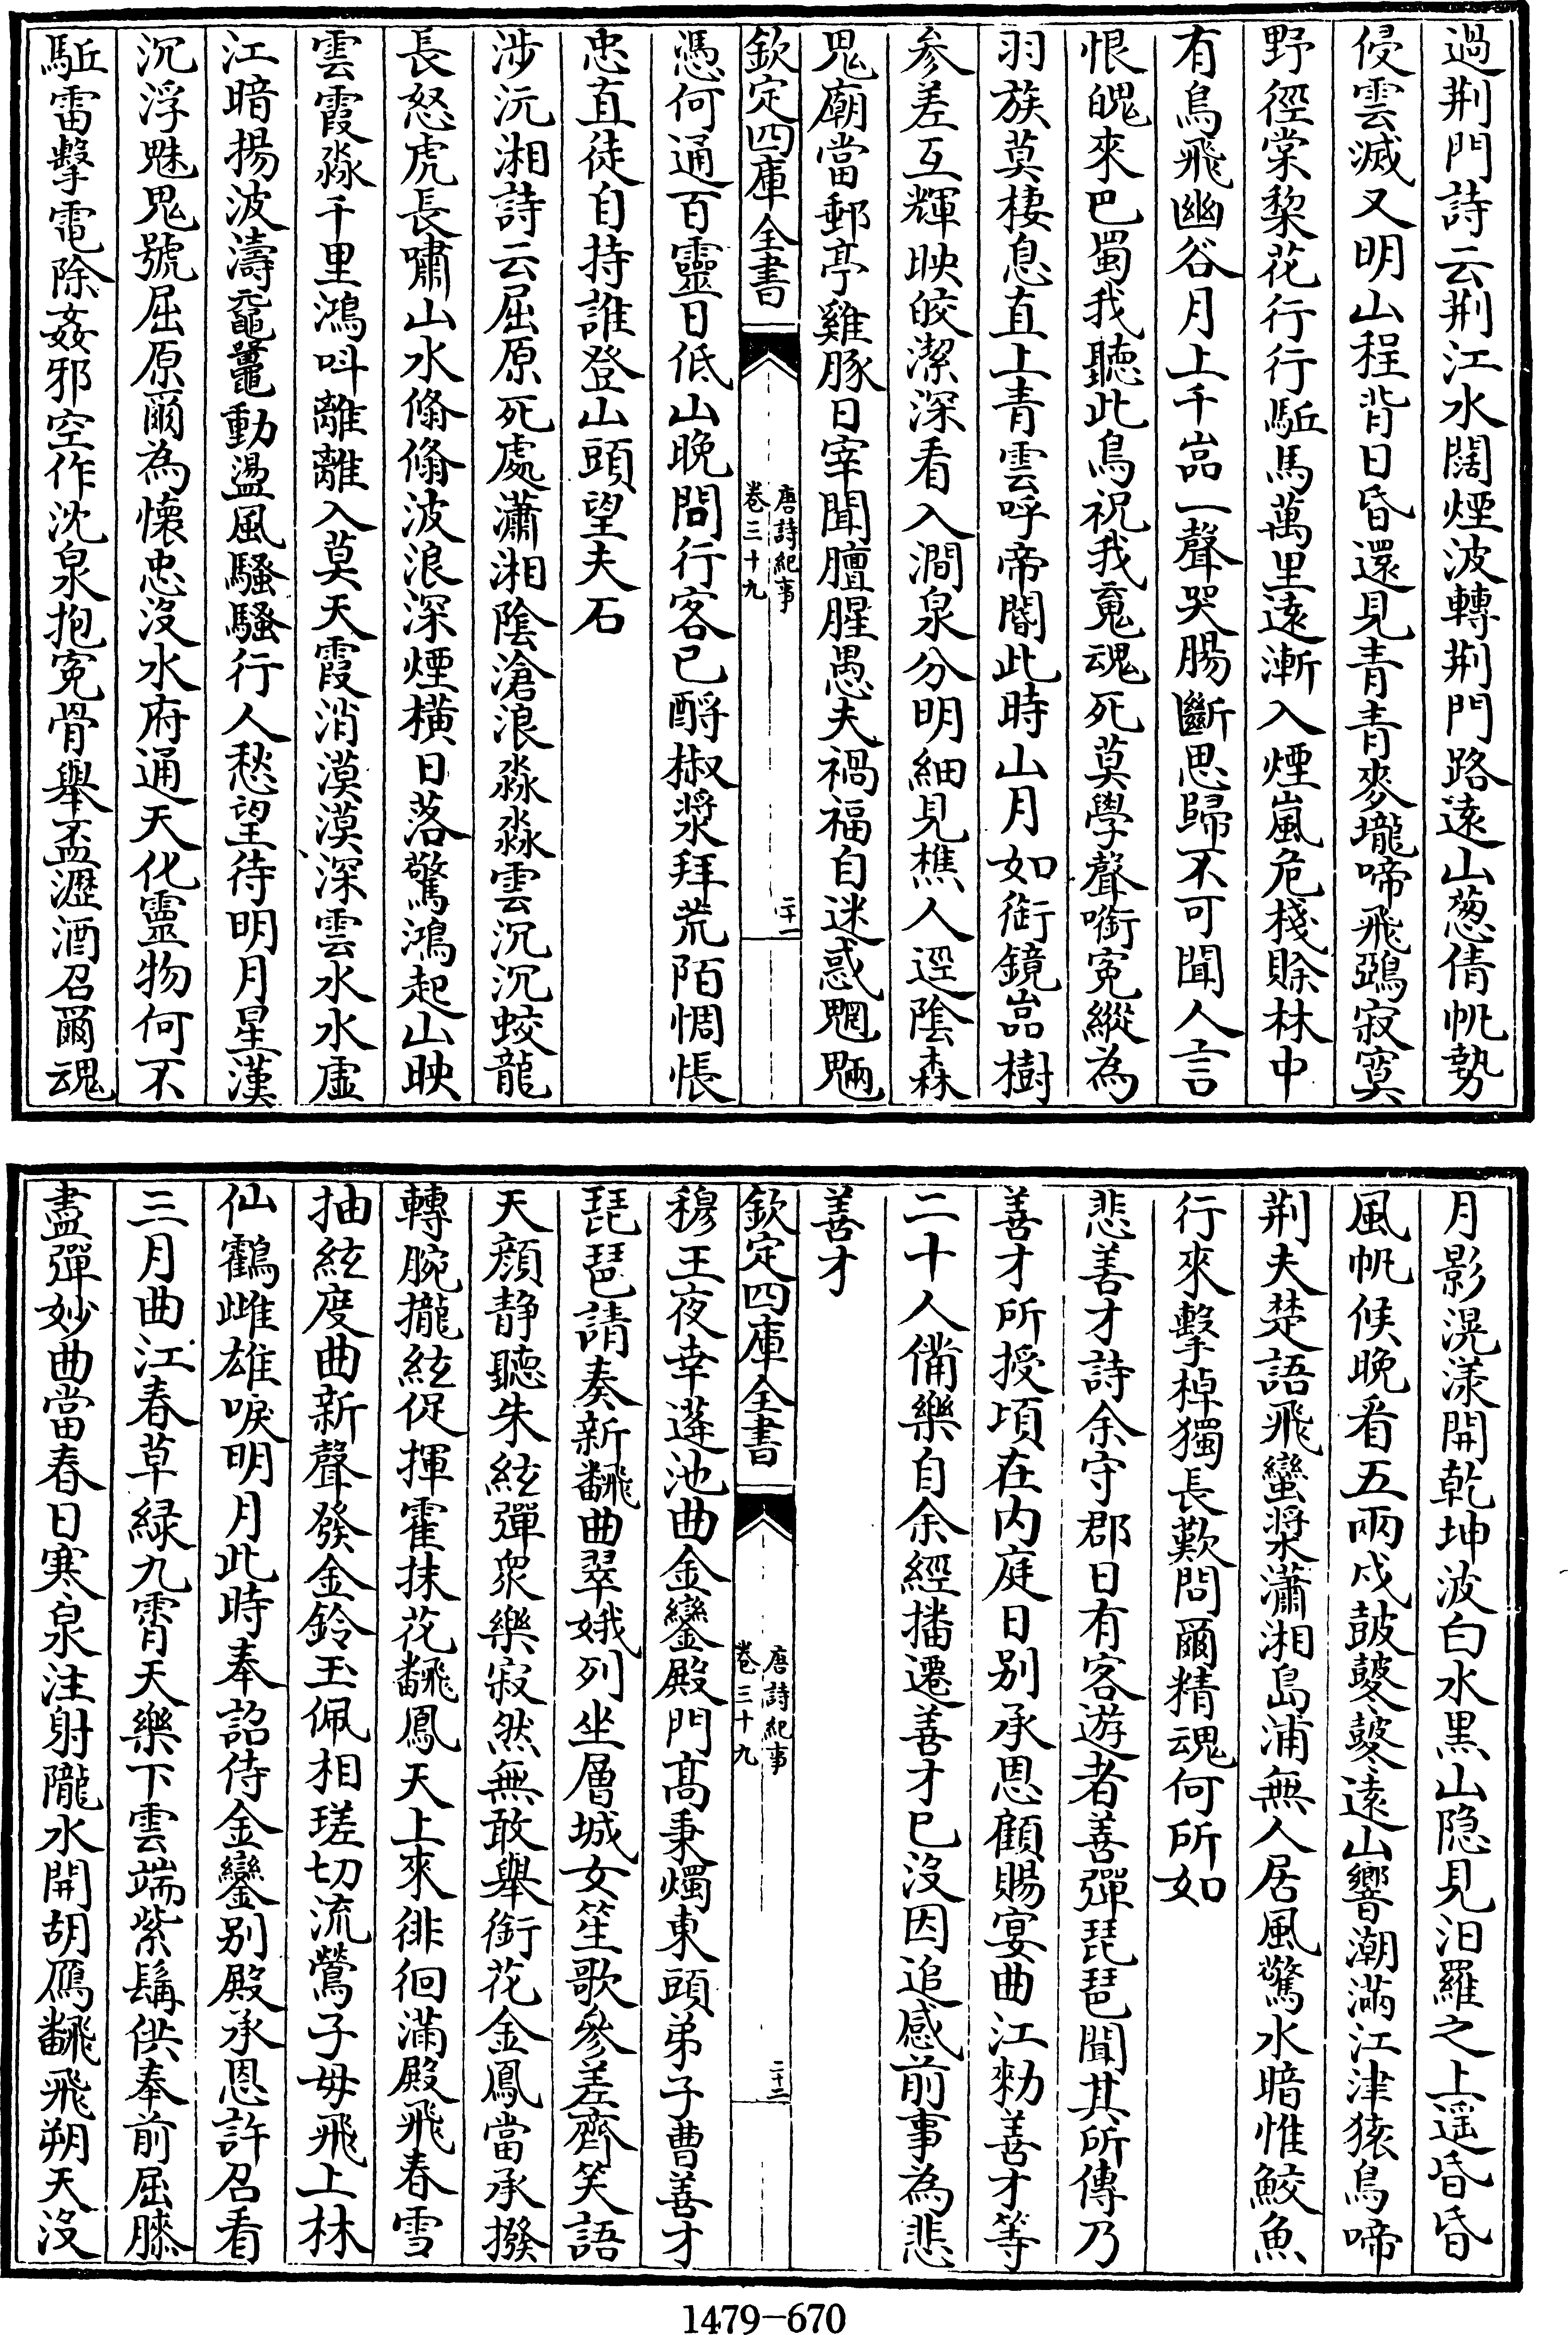 過荆門詩云荆江水闊煙波轉荆門路逺山葱倩帆勢
侵雲滅又明山程背日昏還見青青麥壠啼飛鵶寂寞
野徑棠棃花行行駈馬萬里逺漸入煙嵐危棧賒林中
有鳥飛幽谷月上千嵓一聲哭腸斷思歸不可聞人言
恨魄來巴蜀我聽此鳥祝我䰟魂死莫學聲銜寃縱為
羽族莫棲息直上青雲呼帝閽此時山月如銜鏡嵓樹
參差互輝映皎潔深看入澗泉分明細見樵人逕陰森
鬼廟當郵亭雞豚日宰聞膻腥愚夫禍福自迷惑魍魎
欽定四庫全書
唐詩紀事
卷三十九
二十一
憑何通百靈日低山晚問行客已酹椒漿拜荒陌惆悵
忠直徒自持誰登山頭望夫石
涉沅湘詩云屈原死處瀟湘陰滄浪淼淼雲沉沉蛟龍
長怒虎長嘯山水翛翛波浪深煙橫日落驚鴻起山映
雲霞淼千里鴻呌離離入莫天霞消漠漠深雲水水虛
江暗揚波濤黿鼉動盪風騷騷行人愁望待明月星漢
沉浮魅鬼號屈原爾為懷忠沒水府通天化靈物何不
駈雷擊電除姦邪空作沈泉抱寃骨舉盃瀝酒召爾魂
月影滉漾開乾坤波白水黑山隐見汨羅之上遥昏昏
風帆候晚看五兩戍鼓鼕鼕逺山響潮滿江津猿鳥啼
荆夫楚語飛蠻槳瀟湘島浦無人居風驚水暗惟鮫魚
行來擊棹獨長歎問爾精魂何所如
悲善才詩余守郡日有客遊者善彈琵琶聞其所傳乃
善才所授頃在内庭日别承恩顧賜宴曲江勑善才等
二十人備樂自余經播遷善才已沒因追感前事為悲
善才
欽定四庫全書
唐詩紀事
卷三十九
二十二
穆王夜幸蓬池曲金鑾殿門髙秉燭東頭弟子曹善才
琵琶請奏新飜曲翠娥列坐層城女笙歌參差齊笑語
天顔静聽朱絃彈衆樂寂然無敢舉銜花金鳳當承撥
轉腕攏絃促揮霍抹花飜鳳天上來徘徊滿殿飛春雪
抽絃度曲新聲發金鈴玉佩相瑳切流鶯子母飛上林
仙鶴雌雄唳明月此時奉詔侍金鑾别殿承恩許召看
三月曲江春草緑九霄天樂下雲端紫髯供奉前屈膝
盡彈妙曲當春日寒泉注射隴水開胡鴈飜飛朔天沒
1479-670